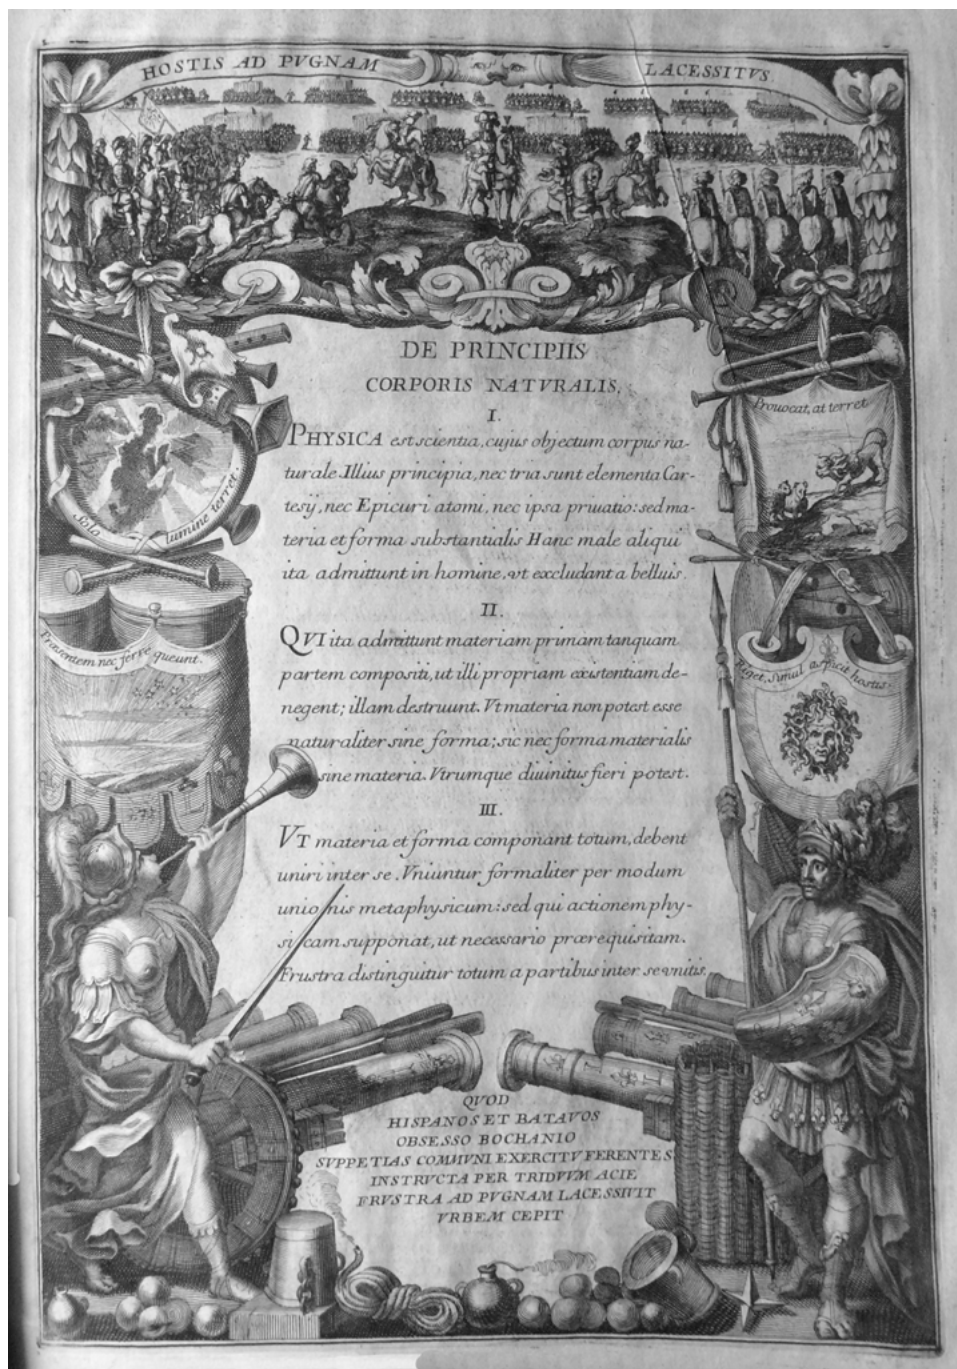 HOSTIS AD PVGNAM LACESSITVS
DE PRINCIPIIS
CORPORIS NATVRALIS.
I.
PHYSICA est scientia, cujus objectum corpus na-
turale. Illius principia, nec tria sunt elementa Car-
tesij, nec Epicuri atomi, nec ipsa priuatio: sed ma-
teria et forma substantialis Hanc male aliqui
ita admittunt in homine, vt excludant a belluis.
II.
QVI ita admittunt materiam primam tanquam
partem compositi, ut illi propriam existentiam de-
negent; illam destruunt. Vt materia non potest esse
naturaliter sine forma; sic nec forma materialis
sine materia. Vtrumque diuinitus fieri potest.
III.
VT materia et forma componant totum, debent
uniri inter se. Vniuntur formaliter per modum
unionis metaphysicum: sed qui actionem phy-
sicam supponat, ut necessario prærequisitam.
Frustra distinguitur totum a partibus inter se vnitis.
Solo lumine terret.
Præsentem nec ferre queunt.
Prouocat, at terret
Riget, simul aspicit hostis.
QVOD
HISPANOS ET BATAVOS
OBSESSO BOCHANIO
SVPPETIAS COMMVNI EXERCITV FERENTES
INSTRVCTA PER TRIDVVM ACIE
FRVSTRA AD PVGNAM LACESSIVIT
VRBEM CEPIT